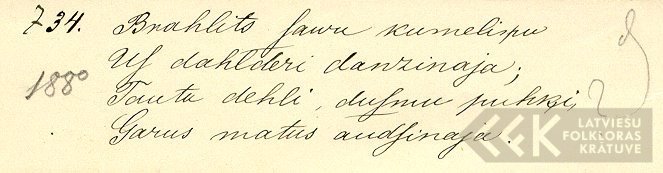 734. Brahlits sawu kumeliņu
Us dahlderi danzinaja;
1880
Tauta dehli, dusmu puhķi,
Garus matus audsinaja.
LATVIEŠU
FOLKLORAS
KRĀTUVE